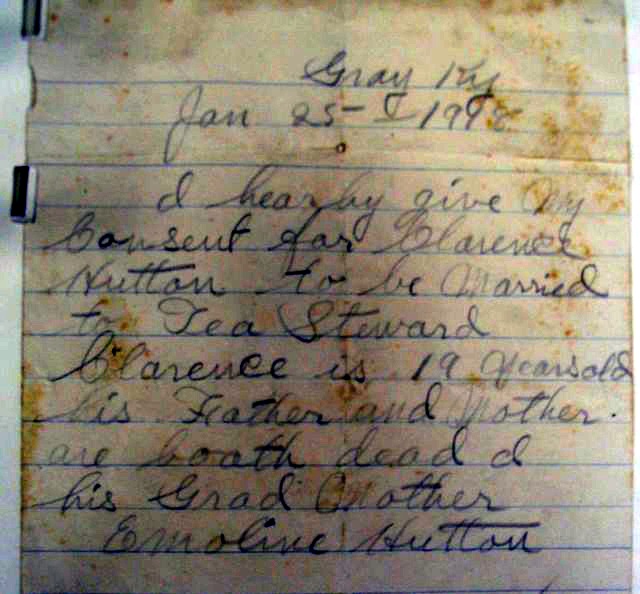 Gray Ky
Jan 25 - 1998
I hear by give My
Consent for Clarence
Hutton to be Married
to Tea Steward
Clarence is 19 years old
his Feather and Mother.
are boath dead I
his Grad Mother
Emoline Hutton